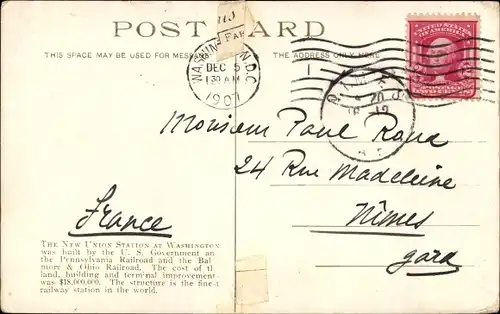 POST CARD
THIS SPACE MAY BE USED FOR MESSA
THE ADDRESS ONLY HERE
WASHIN N.D.C
DEC 5
1907
Monsieur Paul
24 Rue Madeleine
Nîmes
Gard
France
THE NEW UNION STATION AT WASHINGTON
was built by the U. S. Government an
the Pennsylvania Railroad and the Bal
more & Ohio Railroad. The cost of tl
land, building and terminal improvement
was $18,000,000. The structure is the fine-t
railway station in the world.